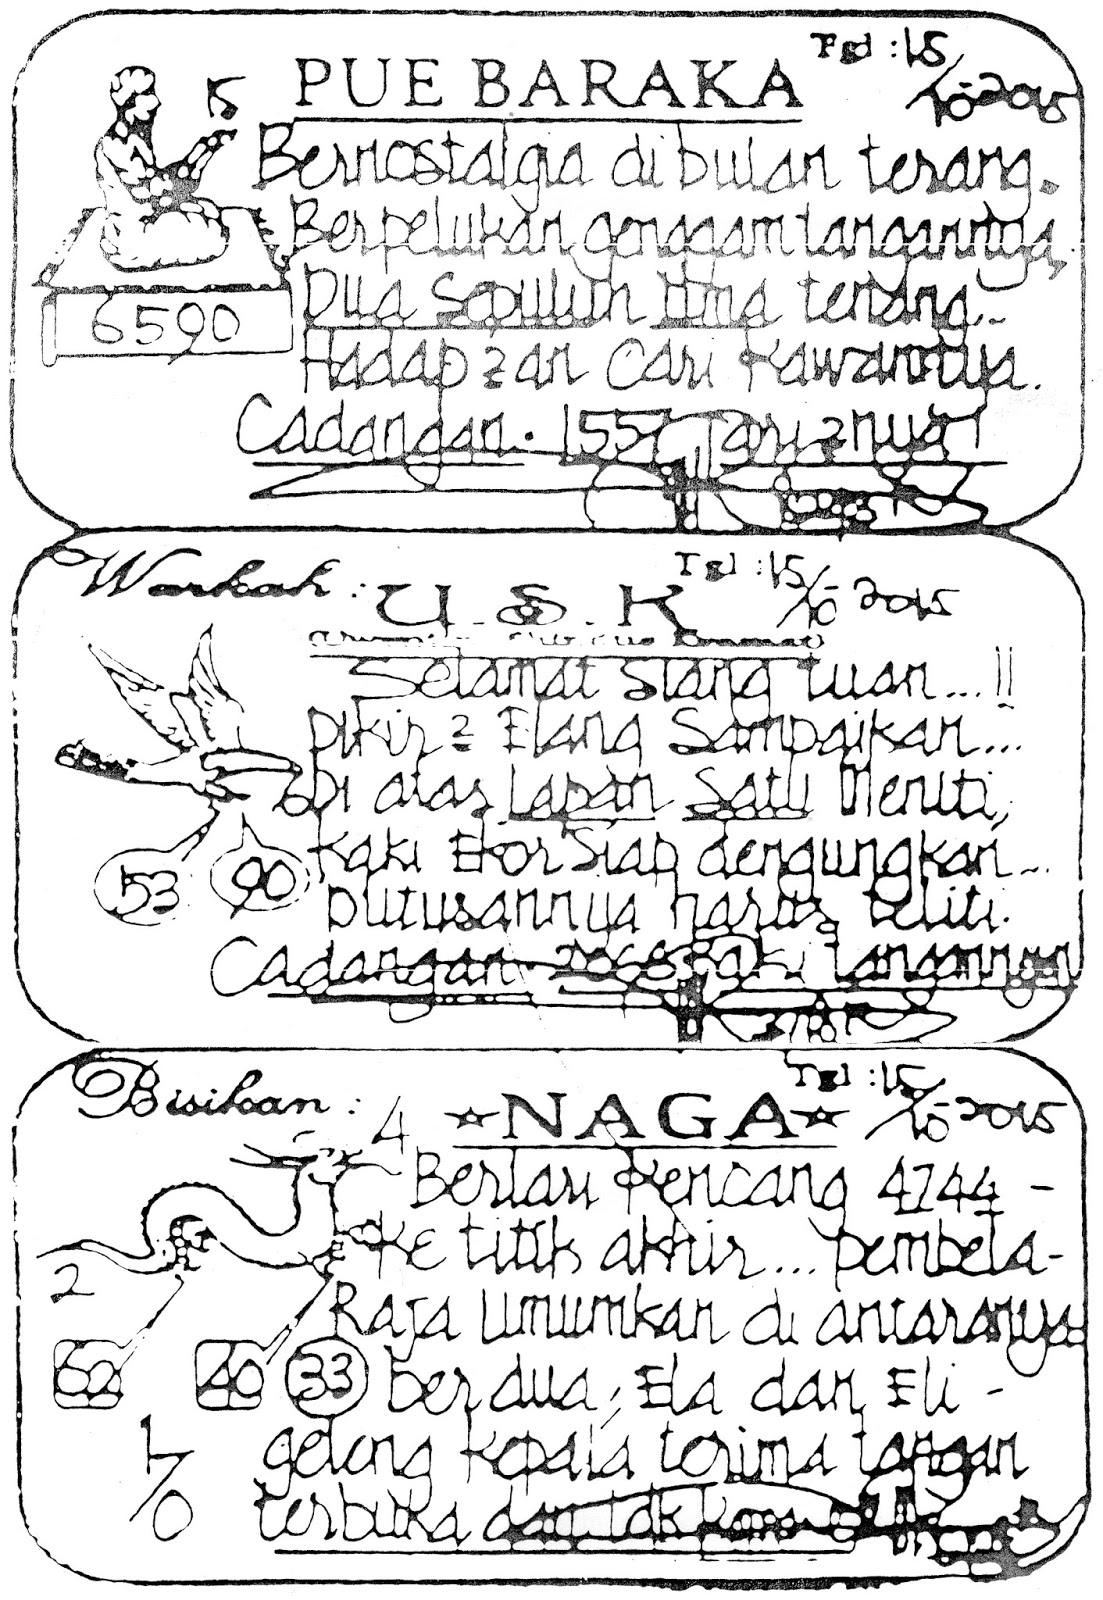 Tgl : 15/10-2015
PUE BARAKA
15
Bernostalgia di bulan terang.
Berpelukan genggam tangannya,
6590
Dua Sepuluh lima tenang..
Hadap2an Cari Kawannya.
Cadangan. 1557
Warkah : U.S.K
Tgl : 15/10 2015
Selamat Siang tuan...!!
Pikir2 Elang Sampaikan...
6
Di atas Lapan Satu Meniti,
53 90
Kaki Ekor Siap dengungkan...
Putusannya harus teliti.
Cadangan Kaki tangannya
Bisikan : ★NAGA★
Tgl : 15/10-2015
4
Berlari Kencang 4744 -
Ke titik akhir... pembela-
2
Raja Umumkan di antaranya
62 20 33
berdua, Ela dan Eli -
1/0
geleng kepala terima tangan
terbuka dan tdk